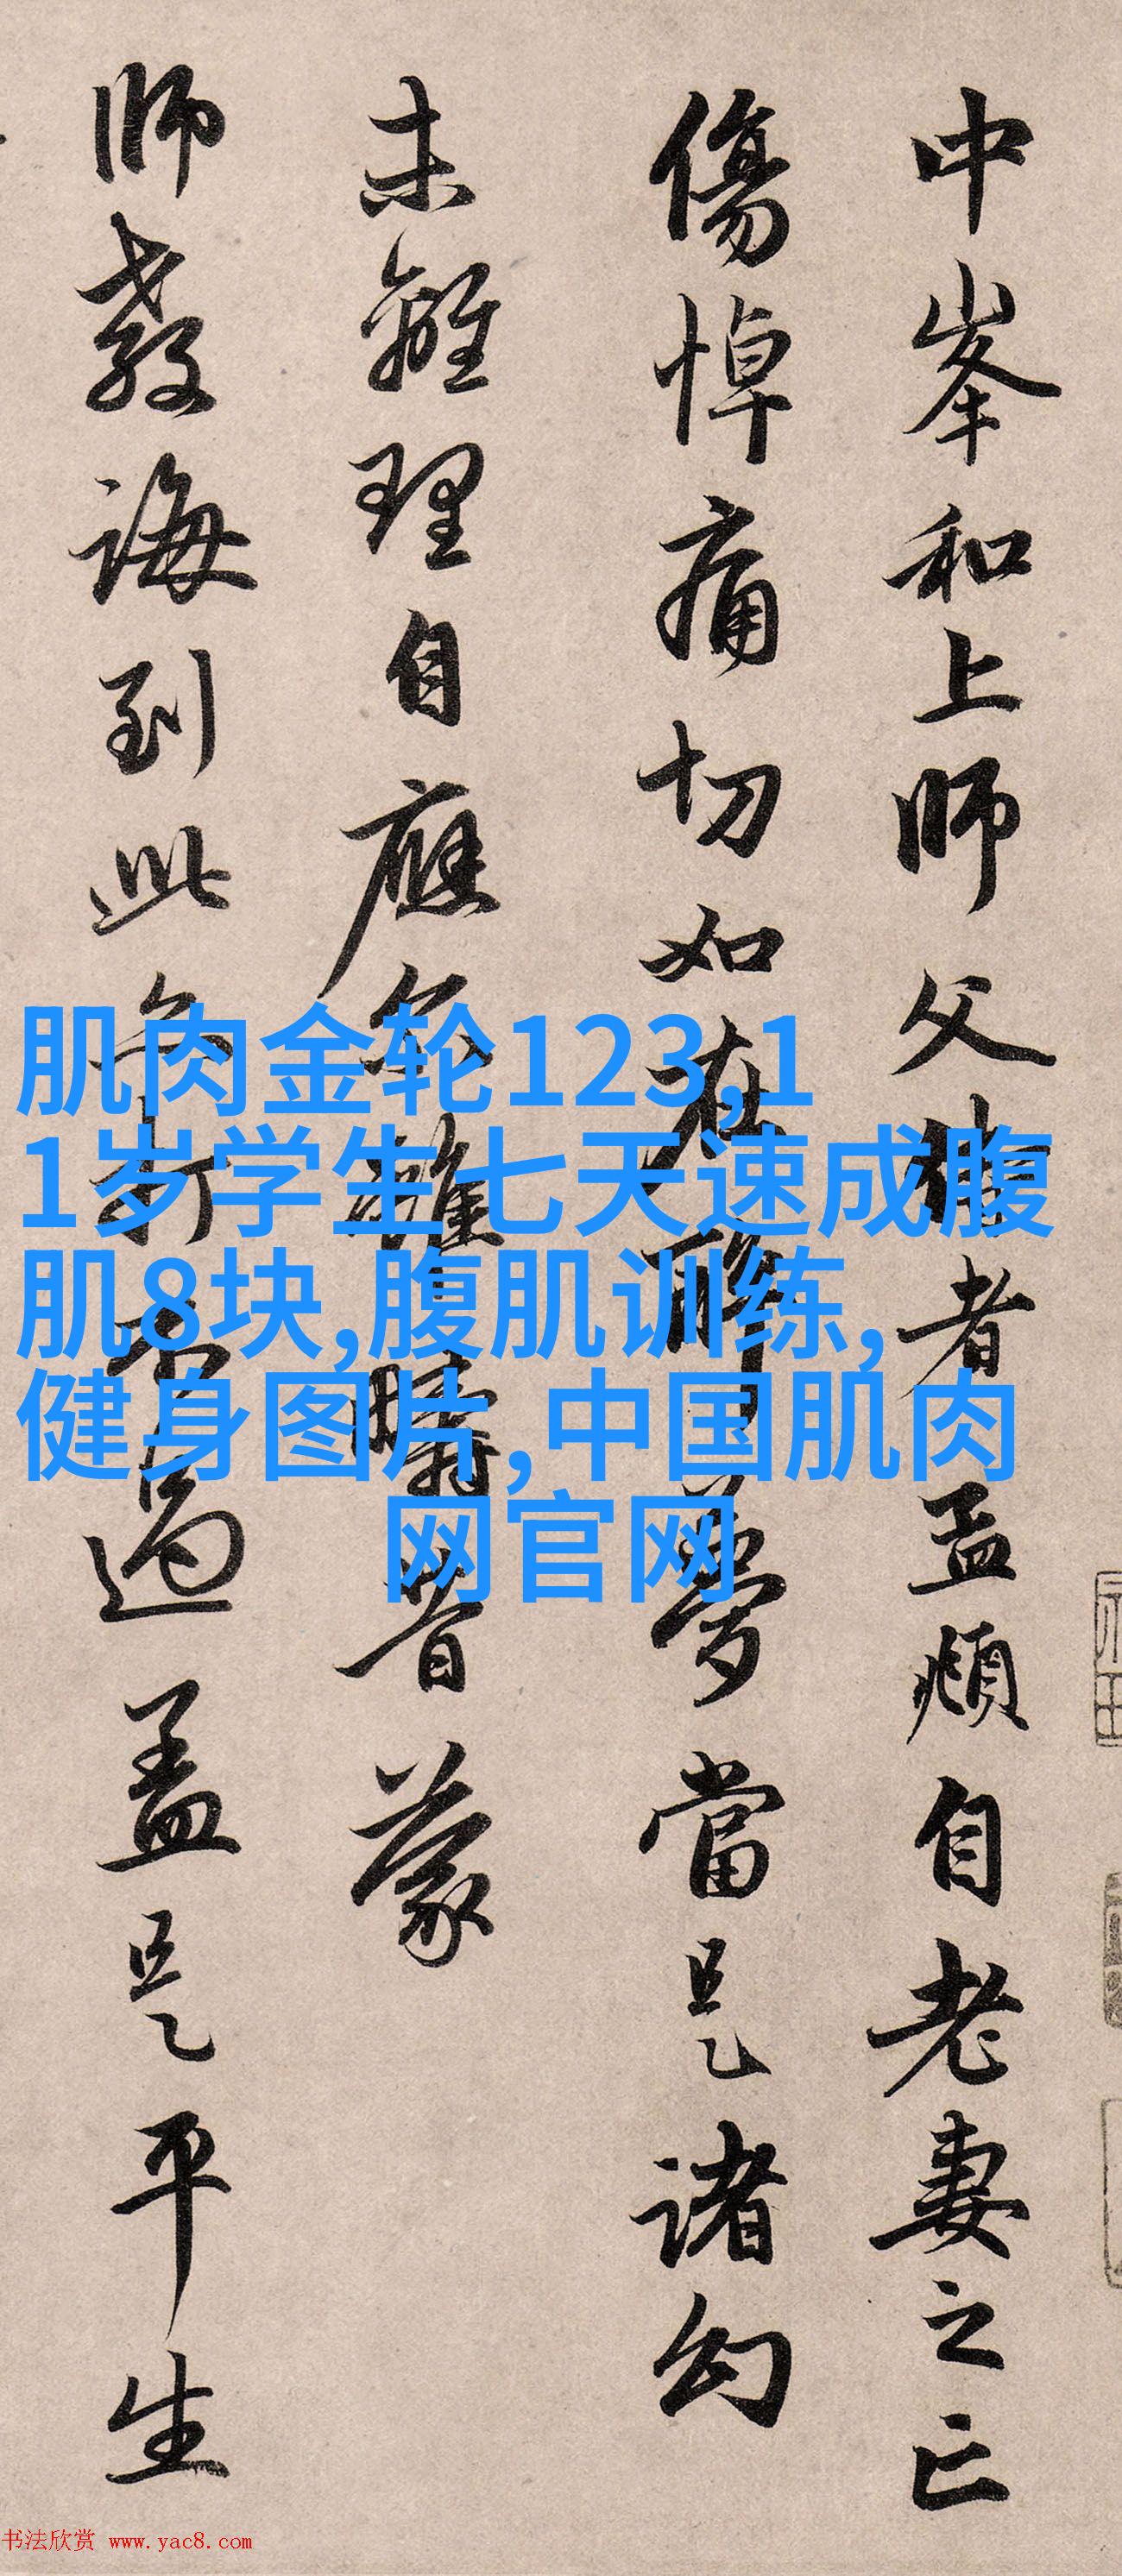 中峯和上師父侍者孟頫自老妻之亡
傷悼痛切如在醉夢當是諸幻
未離理自應尒雖疇昔蒙
師教誨到此亦打不過蓋是平生
肌肉金轮123,1
1岁学生七天速成腹
肌8块,腹肌训练,
健身图片,中国肌肉
网官网
书法欣赏 www.yac8.com